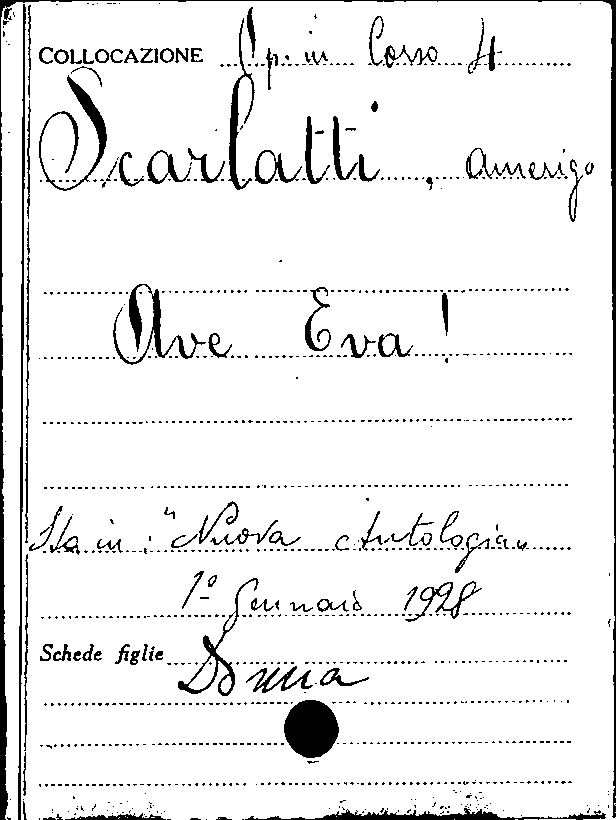 COLLOCAZIONE Op. in Corso 4
Scarlatti, Amerigo
Ave Eva!
Sta in: "Nuova Antologia„
1º Gennaio 1928
Schede figlie Donna